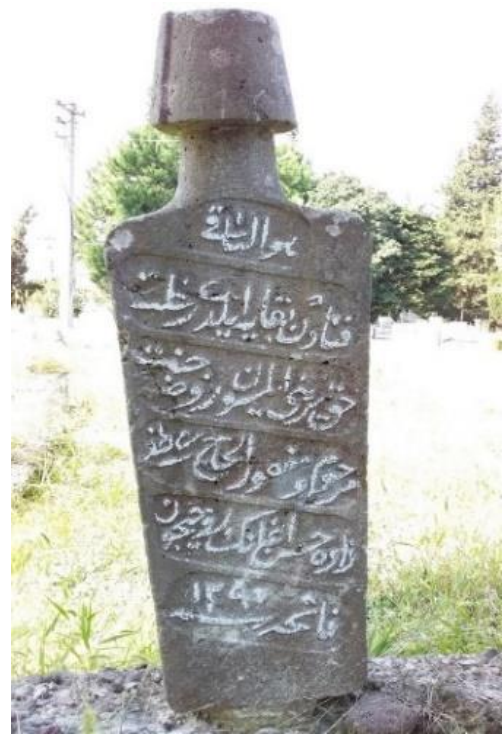 هو الباقی
فنادن بقایه ایلدی رحلت
حق قبرینی ایلسون روضهٔ جنت
مرحوم و مغفور الحاج
زاده حسن اغانك روحیچون
فاتحه سنه ١٢٩٠